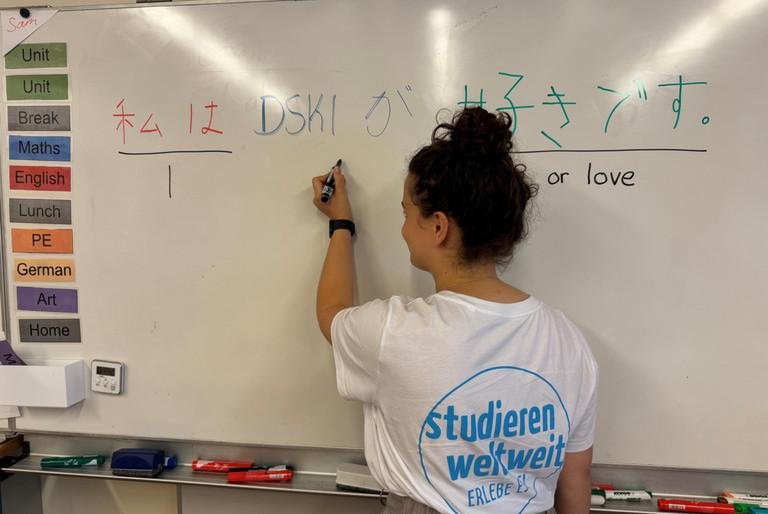 Sam
Unit
Unit
Break
Maths
English
Lunch
PE
German
Art
Home
私は DSKI が 好きです。
I
or love
studieren
weltweit
ERLEBE ES